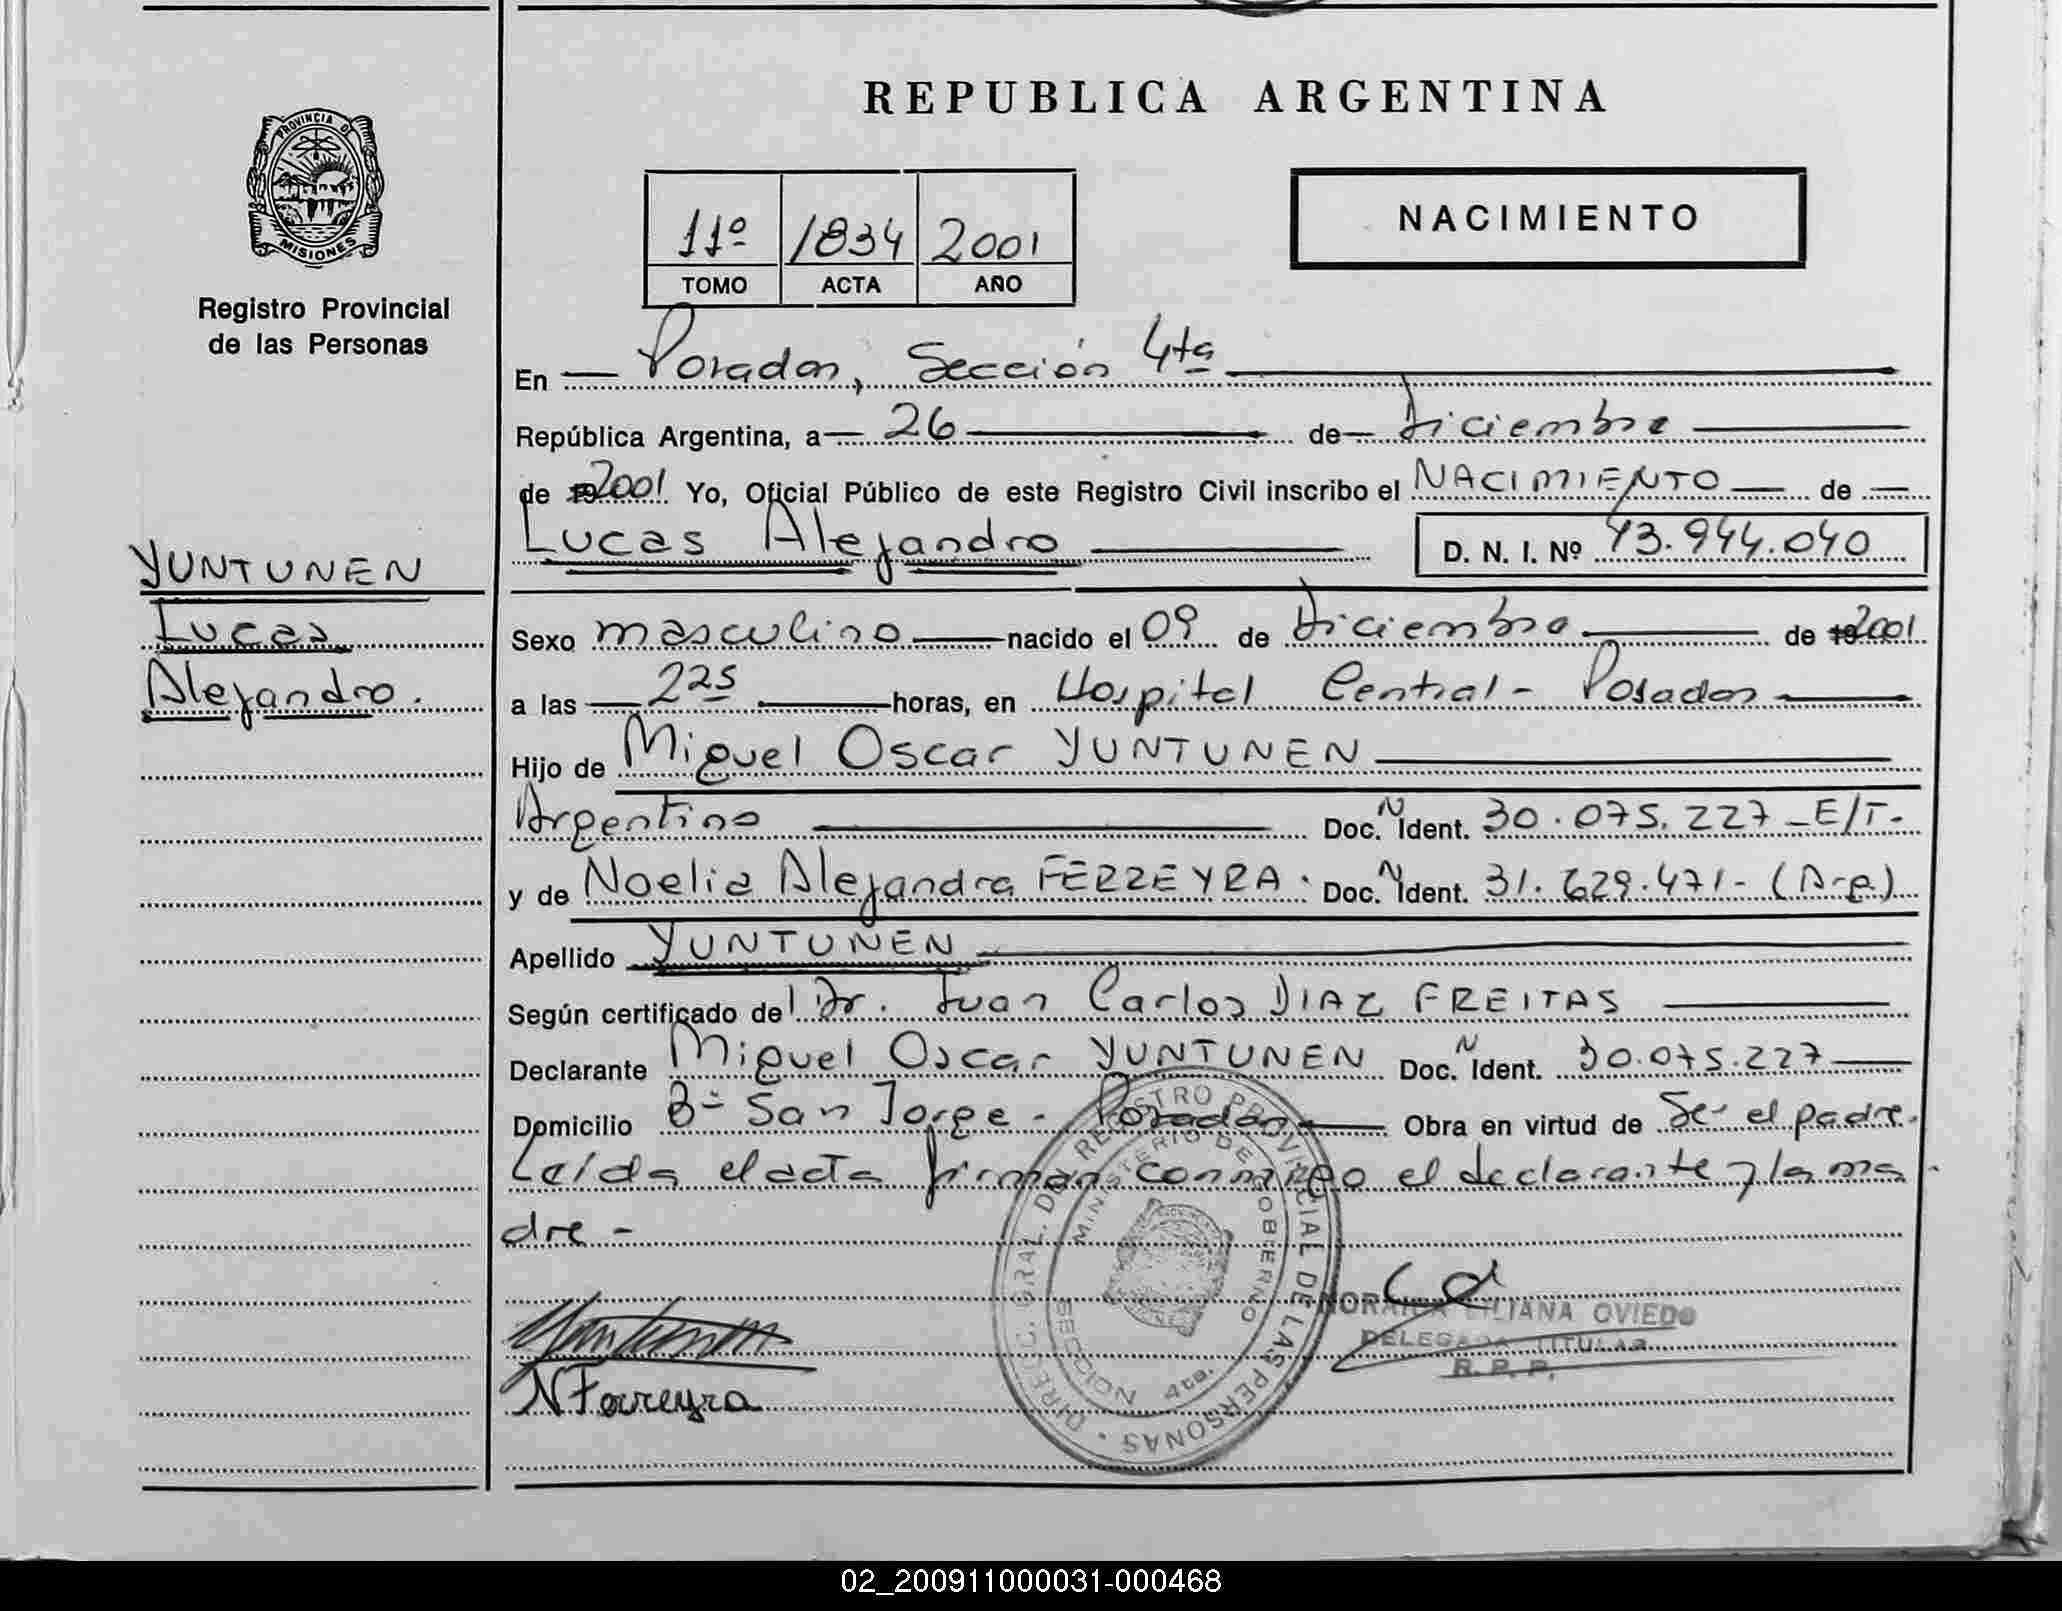 REPUBLICA ARGENTINA
PROVINCIA DE
MISIONES
Registro Provincial
de las Personas
11º 1834 2001
TOMO ACTA AÑO
NACIMIENTO
En Posadas, Sección 4ta
República Argentina, a 26 de Diciembre
de 2001 Yo, Oficial Público de este Registro Civil inscribo el NACIMIENTO de
Lucas Alejandro D. N. I. Nº 43.944.040
YUNTUNEN
Lucas
Alejandro.
Sexo masculino nacido el 09 de Diciembre de 2001
a las 2 25 horas, en Hospital Central - Posadas
Hijo de Miguel Oscar YUNTUNEN
Argentino Doc. N Ident. 30.075.227 - E/T.
y de Noelia Alejandra FERREYRA. Doc. N Ident. 31.629.471 - (Arg)
Apellido YUNTUNEN
Según certificado del Dr. Juan Carlos DIAZ FREITAS
Declarante Miguel Oscar YUNTUNEN Doc. N Ident. 30.075.227
Domicilio Bº San Jorge - Posadas Obra en virtud de Ser el padre.
Leída el acta firman conmigo el declarante y la ma
dre -
DIRECC. GRAL. DEL REGISTRO PROVINCIAL DE LAS PERSONAS
MINISTERIO DE GOBIERNO
MISIONES
LILIANA OVIEDO
DELEGADA TITULAR
R. P. P.
N Ferreyra
02_200911000031-000468